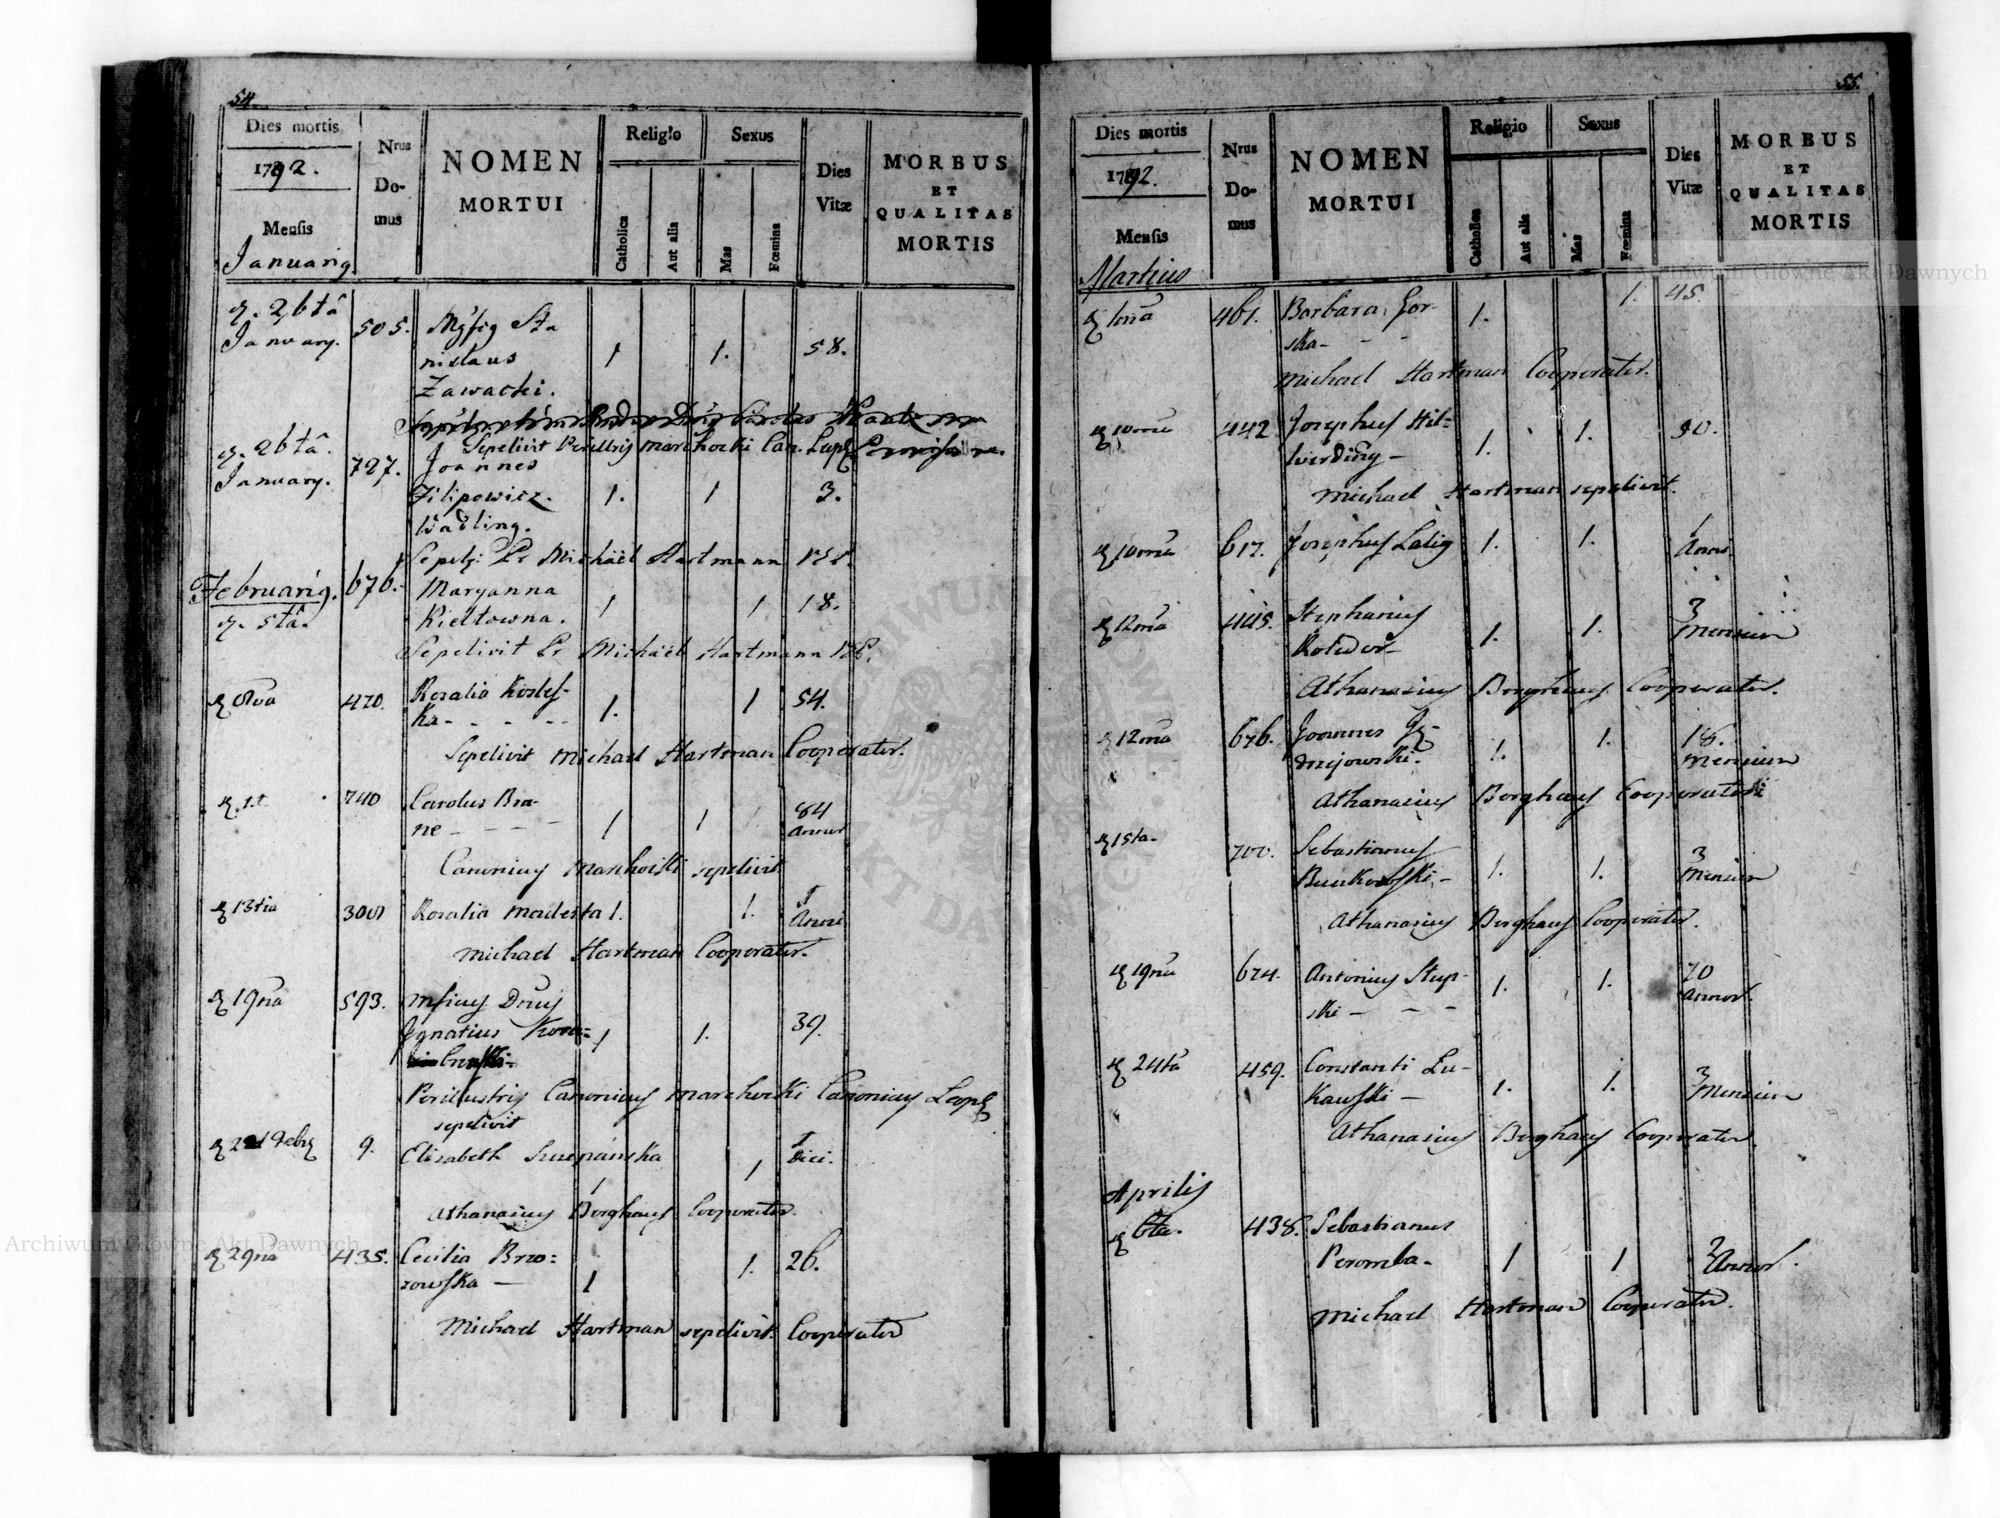 54.
Dies mortis
1792.
Mensis
Nrus
Do-
mus
NOMEN
MORTUI
Religio
Catholica
Aut alia
Sexus
Mas
Fœmina
Dies
Vitæ
MORBUS
ET
QUALITAS
MORTIS
Januarij
26tâ
January.
505.
Sta
nislaus
1
1.
58.
Zawacki.
Sepelivit Perillris Marchocki Can. Leop.
26tâ.
January.
727.
Joannes
Filipowicz.
1.
1
3.
Wadling.
Michäel Hartmann
Februarij.
676.
Maryanna
5tâ.
Rieltowna.
1
1
18.
Sepelivit Michäel Hartmann
8va
470.
Rosalia
ka- - - -
1.
1
54.
Sepelivit Michael Hartman Cooperator.
740
Carolus Bra-
ne - - - -
1
1
84
Annor
Canonicus Marchoiski sepelivit
13tia
300
Rosalia Modesta
1.
1.
1
Anni
Michael Hartman Cooperator.
19na
593.
Ignatius
1
1.
39.
Perillustris Canonicus Marchocki Canonicus Leopl
sepelivit
Febr
9.
Elisabeth Szczepańska
1
1
Diei.
Athanasius Borghaus Cooperator.
29na
435.
Cecilia Brzo=
zowska -
1
1.
26.
Michael Hartman sepelivit Cooperator
55.
Dies mortis
1792.
Mensis
Nrus
Do-
mus
NOMEN
MORTUI
Religio
Catholica
Aut alia
Sexus
Mas
Fœmina
Dies
Vitæ
MORBUS
ET
QUALITAS
MORTIS
Martius
1ma
461.
Barbara Gor-
ska- - -
1.
1.
45.
Michael Hartman Cooperator.
10ma
442
Josephus Hil=
werding -
1.
1.
30.
Michael Hartman sepelivit.
10ma
617.
Josephus Lalig
1.
1.
1
Anni
12ma
445.
Stephanus
Kotwor-
1.
1.
3
Mensium
Athanasius Borghaus Cooperator.
12ma
676.
Joannes
1.
1.
18.
Mensium
Athanasius Borghaus Cooperator
15ta-
700.
Sebastianus
Buikowski, -
1.
1.
3
Mensium
Athanasius Borghaus Cooperator.
19na
674.
Antonius Stup-
ski - - -
1.
1.
70
Annor.
24ta
459.
Constanti Lu-
kawski -
1.
1.
3
Mensium
Athanasius Borghaus Cooperator.
Aprilis
6ta.
438.
Sebastianus
Peromba-
1
1
2
Annor.
Michael Hartman Cooperator.
Archiwum Główne Akt Dawnych
Archiwum Główne Akt Dawnych